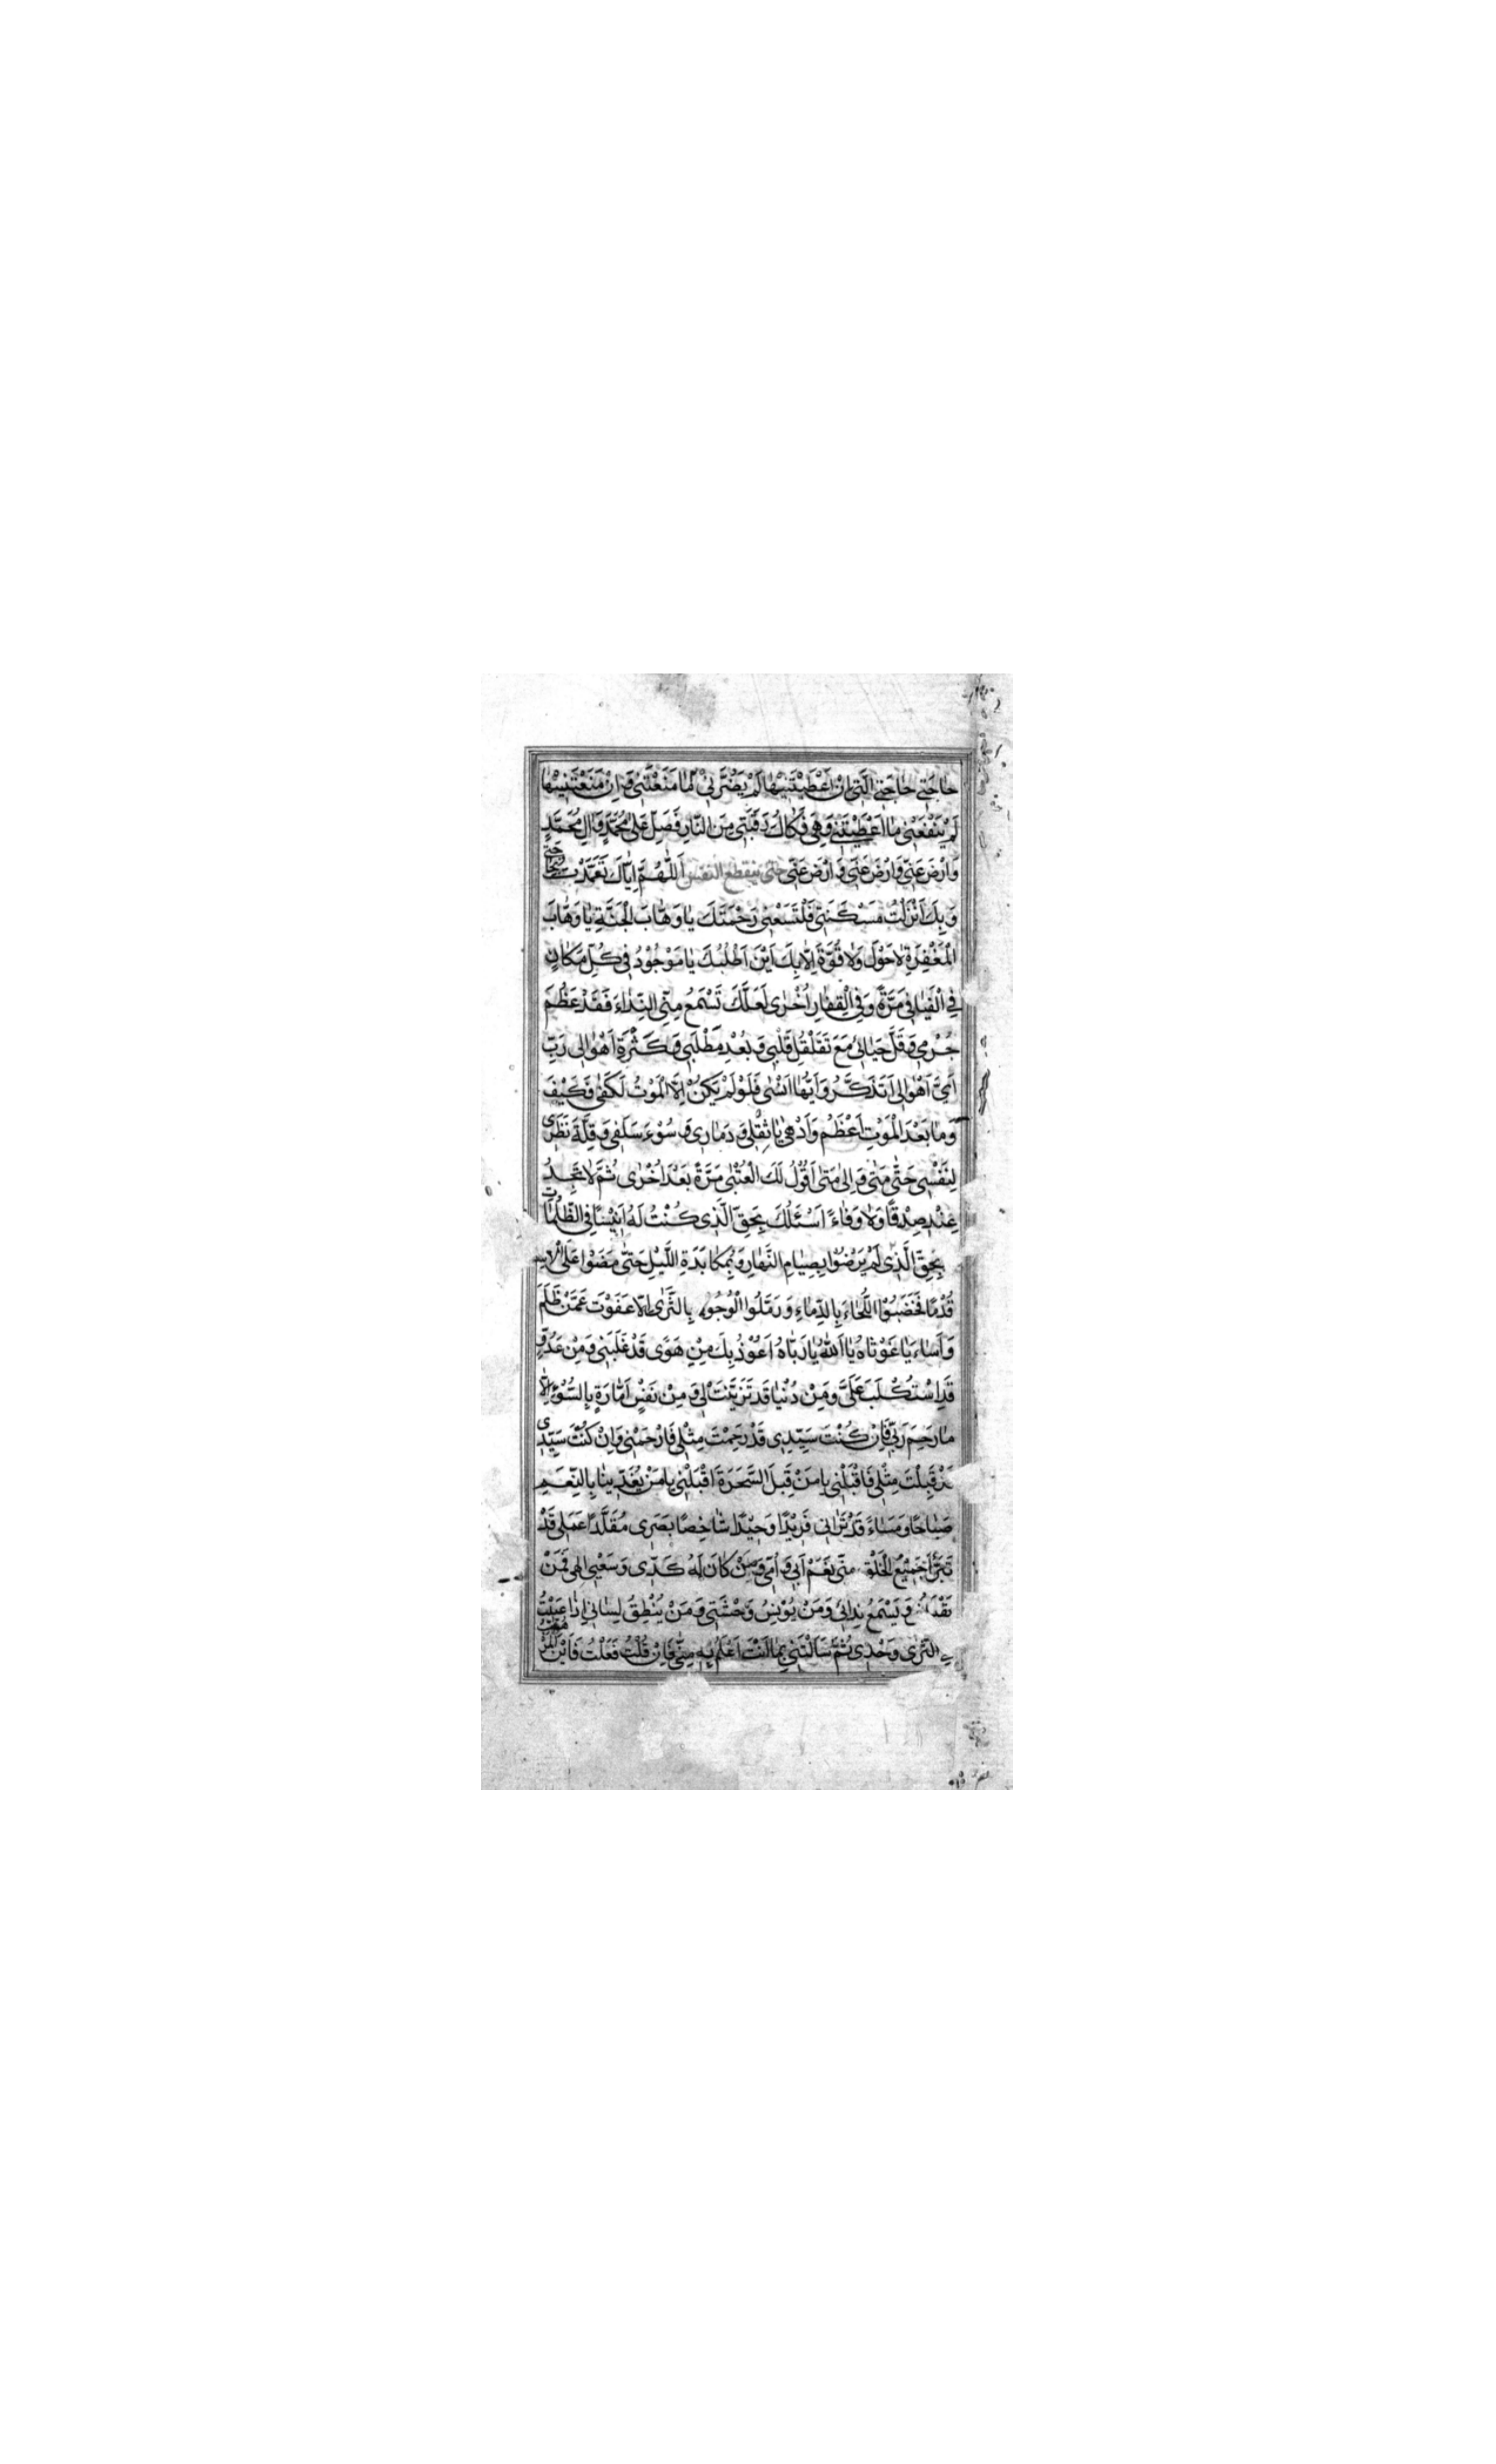 حاجَتي حاجَتِيَ الَّتي اِنْ اَعْطَيْتَنيها لَمْ يَضُرَّني ما مَنَعْتَني وَ اِنْ مَنَعْتَنيها
لَمْ يَنْفَعْني ما اَعْطَيْتَني وَهِيَ فَكاكُ رَقَبَتي مِنَ النّارِ فَصَلِّ عَلى مُحَمَّدٍ وَآلِ مُحَمَّدٍ
وَارْضَ عَنّي وَارْضَ عَنّي وَارْضَ عَنّي حتى ينقطع النفس اَللّهُمَّ اِيّاكَ تَعَمَّدْتُ بحاجتي
وَبِكَ اَنْزَلْتُ مَسْكَنَتي فَلْتَسَعْني رَحْمَتُكَ يا وَهّابَ الْجَنَّةِ يا وَهّابَ
الْمَغْفِرَةِ لا حَوْلَ وَلا قُوَّةَ اِلّا بِكَ اَيْنَ اَطْلُبُكَ يا مَوْجُودُ في كُلِّ مَكانٍ
فِي الْفَيافي مَرَّةً وَفِي الْقِفارِ اُخْرى لَعَلَّكَ تَسْمَعُ مِنِّي النِّداءَ فَقَدْ عَظُمَ
جُرْمي وَقَلَّ حَيائي مَعَ تَقَلْقُلِ قَلْبي وَبُعْدِ مَطْلَبي وَكَثْرَةِ اَهْوالي رَبِّ
اَيَّ اَهْوالي اَتَذَكَّرُ وَاَيَّها اَنْسى فَلَوْ لَمْ يَكُنْ اِلَّا الْمَوْتُ لَكَفى فَكَيْفَ
وَما بَعْدَ الْمَوْتِ اَعْظَمُ وَاَدْهى يا ثِقْلي وَدَماري وَسُوْءَ سَلَفي وَقِلَّةَ نَظَري
لِنَفْسي حَتّى مَتى وَاِلى مَتى اَقُولُ لَكَ الْعُتْبى مَرَّةً بَعْدَ اُخْرى ثُمَّ لا تَجِدُ
عِنْدي صِدْقًا وَلا وَفاءً اَسْئَلُكَ بِحَقِّ الَّذي كُنْتَ لَهُ اَنيسًا فِي الظُّلُماتِ
بِحَقِّ الَّذي لَمْ يَرْضَوْا بِصِيامِ النَّهارِ وَبِمُكابَدَةِ اللَّيْلِ حَتّى مَضَوْا عَلَى الْاَسِنَّةِ
قُدْمًا فَخَضَبُوا اللُّحاءَ بِالدِّماءِ وَرَمَّلُوا الْوُجُوهَ بِالثَّرى اِلّا عَفَوْتَ عَمَّنْ ظَلَمَ
وَاَساءَ يا غَوْثاهُ يا اَللهُ يا رَبّاهُ اَعُوذُ بِكَ مِنْ هَوىً قَدْ غَلَبَني وَمِنْ عَدُوٍّ
قَدِ اسْتَكْلَبَ عَلَيَّ وَمِنْ دُنْيا قَدْ تَزَيَّنَتْ لي وَمِنْ نَفْسٍ اَمّارَةٍ بِالسُّوءِ اِلّا
ما رَحِمَ رَبّي فَاِنْ كُنْتَ سَيِّدي قَدْ رَحِمْتَ مِثْلي فَارْحَمْني وَاِنْ كُنْتَ سَيِّدي
قَدْ قَبِلْتَ مِثْلي فَاقْبَلْني يا مَنْ قَبِلَ السَّحَرَةَ اقْبَلْني يا مَنْ يُغَذّينا بِالنِّعَمِ
صَباحًا وَمَساءً قَدْ تَراني فَريدًا وَحيدًا شاخِصًا بَصَري مُقَلَّدًا عَمَلي قَدْ
تَبَرَّأَ جَميعُ الْخَلْقِ مِنّي نَعَمْ اَبي وَاُمّي وَمَنْ كانَ لَهُ كَدّي وَسَعْيي اِلهي فَمَنْ
وَيَسْمَعُ نِدائي وَمَنْ يُونِسُ وَحْشَتي وَمَنْ يُنْطِقُ لِساني اِذا غَيَّبْتُ
الثَّرى وَحْدي ثُمَّ سَاَلْتَني بِما اَنْتَ اَعْلَمُ بِهِ مِنّي فَاِنْ قُلْتُ فَعَلْتُ فَاَيْنَ الْمَفَرُّ